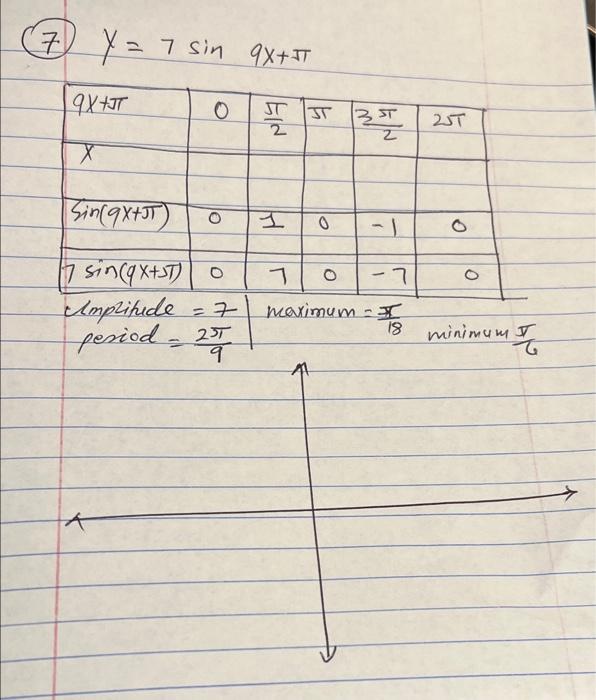 7 y = 7 sin 9x+π
9x+π 0 π/2 π 3π/2 2π
x
Sin(9x+π) 0 1 0 -1 0
7 sin(9x+π) 0 7 0 -7 0
Amplitude = 7 maximum = π/18
period = 2π/9 minimum π/6